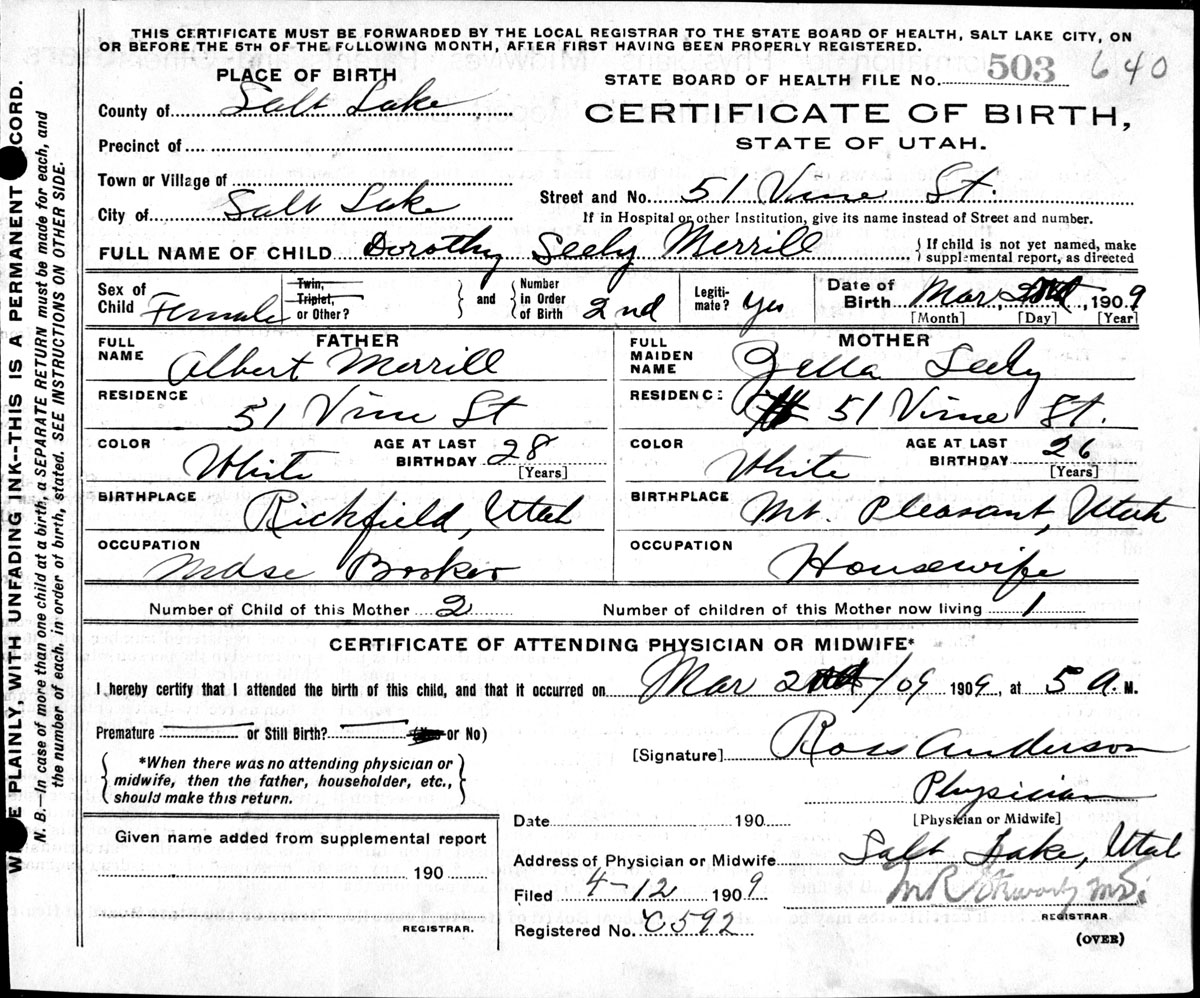 THIS CERTIFICATE MUST BE FORWARDED BY THE LOCAL REGISTRAR TO THE STATE BOARD OF HEALTH, SALT LAKE CITY, ON
OR BEFORE THE 5TH OF THE FOLLOWING MONTH, AFTER FIRST HAVING BEEN PROPERLY REGISTERED.
PLACE OF BIRTH
STATE BOARD OF HEALTH FILE No. 503 640
County of Salt Lake
CERTIFICATE OF BIRTH,
STATE OF UTAH.
Precinct of
Town or Village of
Street and No. 51 Vine St.
City of Salt Lake
If in Hospital or other Institution, give its name instead of Street and number.
FULL NAME OF CHILD Dorothy Seely Merrill
{ If child is not yet named, make
supplemental report, as directed
Sex of Child Female
Twin, Triplet, or Other?
} and { Number in Order of Birth 2nd
Legitimate? Yes
Date of Birth Mar 2nd, 1909
[Month] [Day] [Year]
FATHER
FULL NAME Albert Merrill
MOTHER
FULL MAIDEN NAME Zella Seely
RESIDENCE 51 Vine St
RESIDENCE 51 Vine St.
COLOR White AGE AT LAST BIRTHDAY 28 [Years]
COLOR White AGE AT LAST BIRTHDAY 26 [Years]
BIRTHPLACE Richfield, Utah
BIRTHPLACE Mt. Pleasant, Utah
OCCUPATION Mdse Broker
OCCUPATION Housewife
Number of Child of this Mother 2
Number of children of this Mother now living 1
CERTIFICATE OF ATTENDING PHYSICIAN OR MIDWIFE*
I hereby certify that I attended the birth of this child, and that it occurred on Mar 2nd/09 1909, at 5 A. M.
Premature or Still Birth? (Yes or No)
[Signature] Ross Anderson
{ *When there was no attending physician or
midwife, then the father, householder, etc.,
should make this return. }
Physician
[Physician or Midwife]
Date 190
Given name added from supplemental report
190
REGISTRAR.
Address of Physician or Midwife Salt Lake, Utah
Filed 4-12 1909
REGISTRAR
Registered No. C592
(OVER)
PLAINLY, WITH UNFADING INK--THIS IS A PERMANENT CORD.
N. B.—In case of more than one child at a birth, a SEPARATE RETURN must be made for each, and
the number of each, in order of birth, stated. SEE INSTRUCTIONS ON OTHER SIDE.